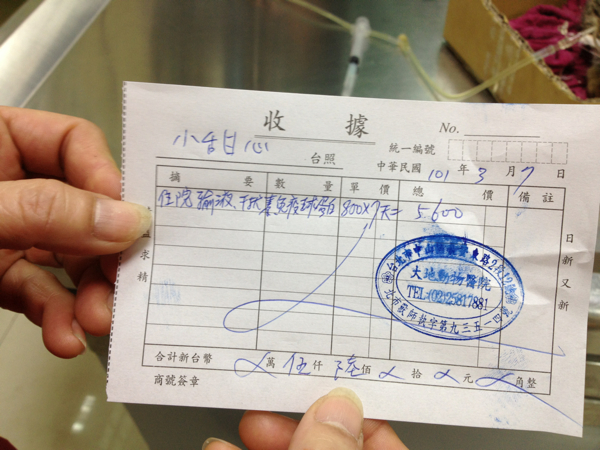 收據
No.
小甜心 台照
統一編號
中華民國 101 年 3 月 7 日
摘要 數量 單價 總價 備註
住院 輸液、干扰素免疫球蛋白 800×7天= 5.600
大地動物醫院
TEL:(02)25817881
精益求精
日新又新
合計新台幣 萬 伍 仟 陸 佰 拾 元 角整
商號簽章